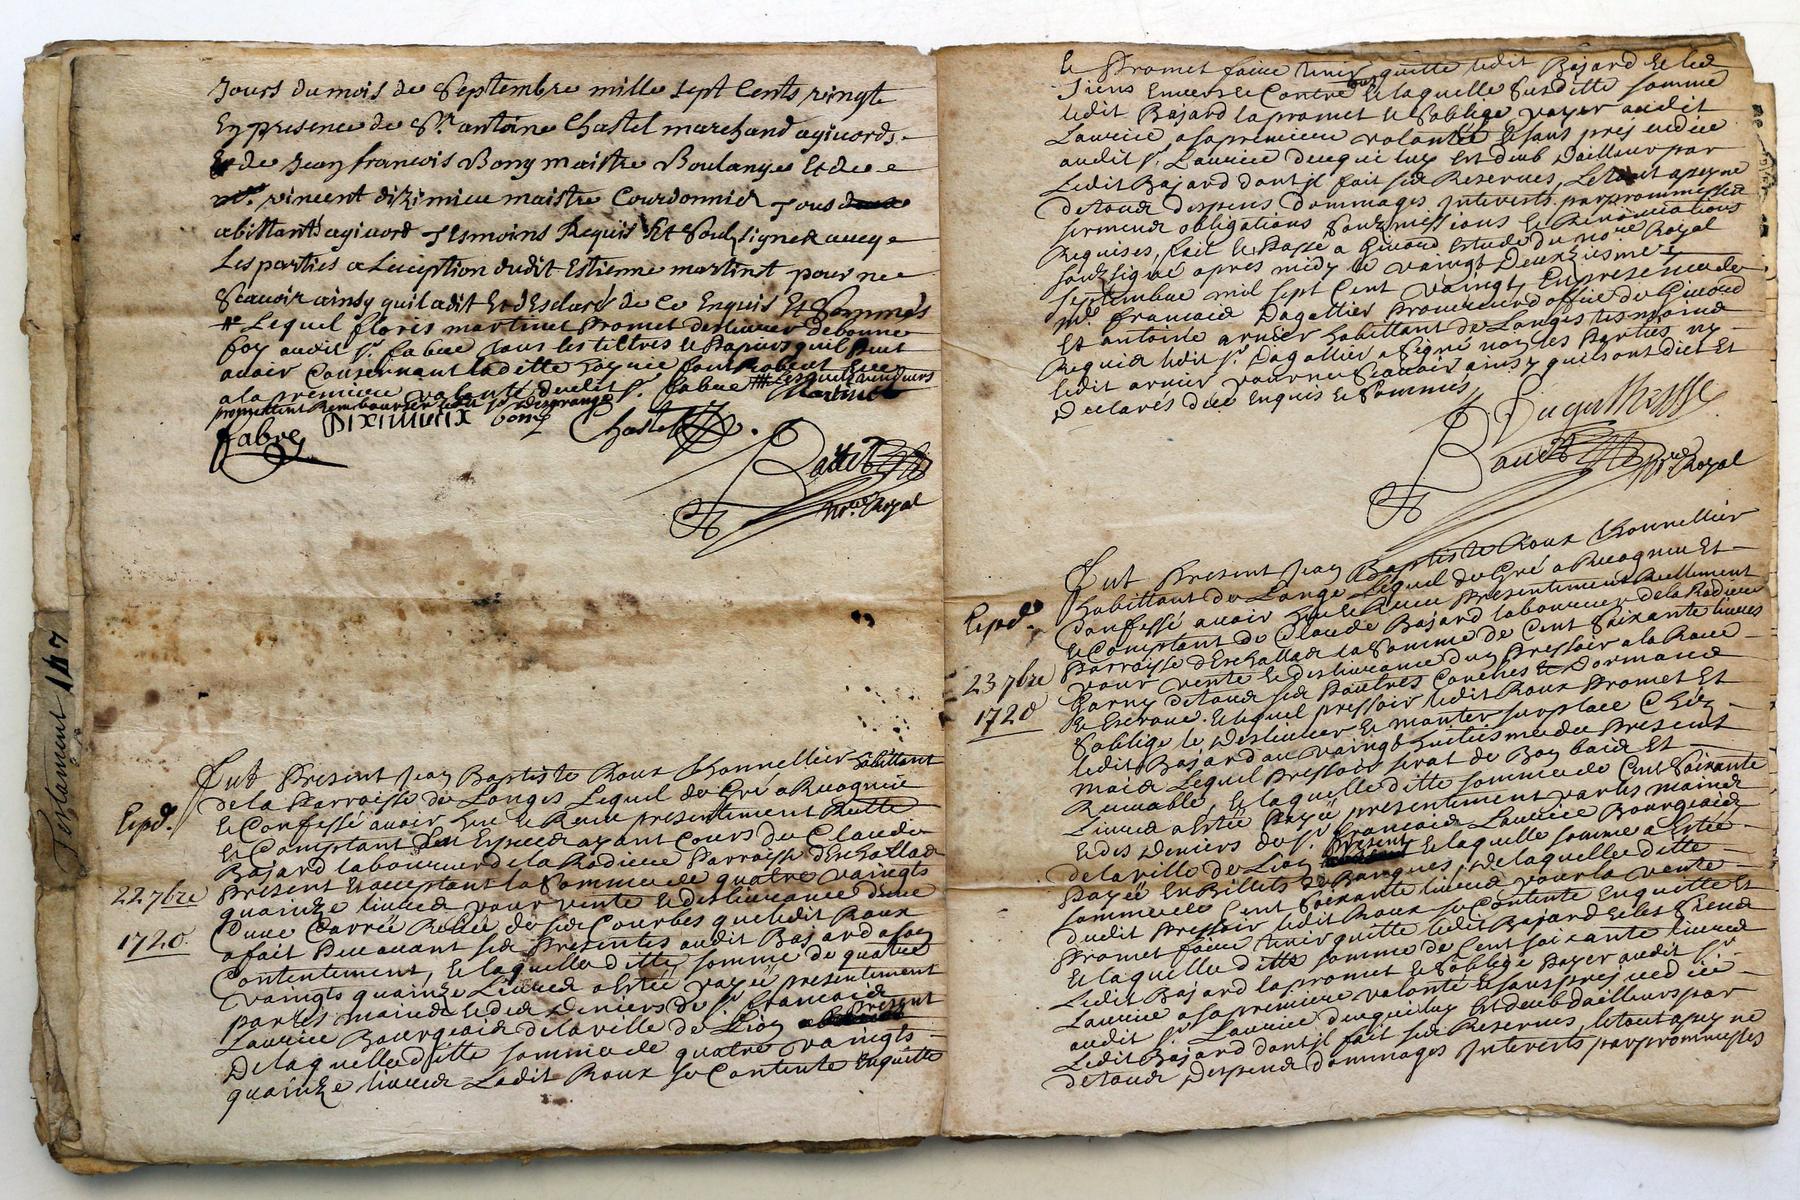 Jours du mois de Septembre mille sept Cents vingt
En presence de Sr. antoine Chastel marchand a givords
Et de Jean francois Bony maistre Boulanger Et de
vincent dizimieu maistre Courdonnier Tous
abittants a givord Tesmoins Requis Et Soubsignez avec
Les parties a Lexception dudit Estienne martinet pour ne
Scavoir ainsy quil a dit Et desclaré de ce Enquis Et Sommés
Lequel floris martinet Promet deslivrer de bonne
foy audit Sr. fabre tous les tiltres Et Papiers quil peut
avoir Consernant laditte
a la premiere volonté dudit Sr. fabre Lesquels vendeurs
promettent Rembourser
fabre DIXIMIEIX bony Chastel
nore. Royal
Testament 147
Expd.
22 7bre
1720.
Fut Present Jean Baptiste Roux thonnellier habittant
de la Parroisse de Longes Lequel de Gré a Recognu
Et Confessé avoir heu Et Receu presentement Reellement
Et Comptant En Especes ayant Cours de Claude
Bajard laboureur de la Rodiere Parroisse d'Eschallas
Present Et acceptant la Somme de quatre vaingts
quainze livres pour vente Et deslivrance d'une
Cuve Carrée de six Courbes que ledit Roux
a fait Peu avant ses Presentes audit Bajard a son
Contentement, Et laquelle ditte somme de quatre
vaingts quainze Livres a Estée payée presentement
par les mains Et des Deniers de Sr. francois
Laurice Bourgeois de la ville de Lion Present
De laquelle ditte somme de quatre vaingts
quainze livres Ledit Roux se Contente Enquitte
Et Promet faire tenir quitte ledit Bajard Et les
Siens Envers Et Contre Tous Et laquelle Susditte somme
ledit Bajard la promet Et S'oblige payer audit
Laurice a sa premiere volonté Et sans prejeudice
audit Sr. Laurice de ce qui luy Est deub d'ailleurs par
Ledit Bajard dont il fait ses Reserves, Le tout a peyne
de tous despens dommages Interests par prommesses
serment obligations Soubzmissions Et Renonciations
Requises, fait Et Passé a Givord Estude du nore. Royal
soubzsigné apres midy le vaingt Deuxziesme
septembre mil sept Cent vaingt, En presence de
Me. francois Dagallier Procureur d'office de Givord
Et antoine arnier habittant de Longes tesmoins
Requis ledit Sr. Dagallier a Signé non les Parties ny
ledit arnier pour ne Scavoir ainsy quils ont dict Et
Declarés de ce Enquis Et Sommés
nore. Royal
Expd.
23 7bre
1720
Fut Present Jean Baptiste Roux thonnellier
habittant de Longe Lequel de Gré a Recognu Et
Confessé avoir heu Et Receu Presentement Reellement
Et Comptant de Claude Bajard laboureur de la Rodiere
Parroisse d'Eschallas la Somme de Cent Soixante livres
pour vente Et deslivrance d'un Pressoir a la Roue
Garny de tous ses Pautres Couches Et Dormans
Et Escroue. Et lequel pressoir ledit Roux Promet Et
S'oblige le Deslivrer Et monter sur place Chez
ledit Bajard au vaingt huitiesme du Present
mois Lequel Pressoir serat de Bon bois Et
Recevable, Et laquelle ditte somme de Cent Soixante
Livres a Estée Payée presentement par les mains
Et des Deniers de Sr. francois Laurice Bourgeois
de la ville de Lion Present Et laquelle somme a Estée
Payée En Billets de Banque, De laquelle ditte
somme de Cent Soixante livres pour la vente
dudit Pressoir ledit Roux se Contente Enquitte Et
Promet faire tenir quitte ledit Bajard Et les Siens
Et laquelle ditte somme de Cent soixante livres
Ledit Bajard la promet Et S'oblige Payer audit Sr.
Laurice a sa premiere volonté Et sans prejeudice
audit Sr. Laurice de ce qui luy Est deub d'ailleurs par
Ledit Bajard dont il fait ses Reserves, le tout a peyne
de tous Despens dommages Interests par prommesses